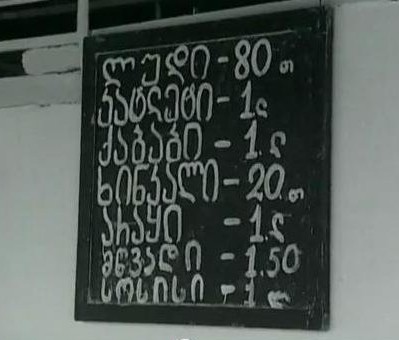 ლუდი - 80 თ
კატლეტი - 1 ლ
ქაბაბი - 1. ლ
ხინკალი - 20. თ
არაყი - 1. ლ
მწვადი - 1.50
სოსისი - 1 ლ